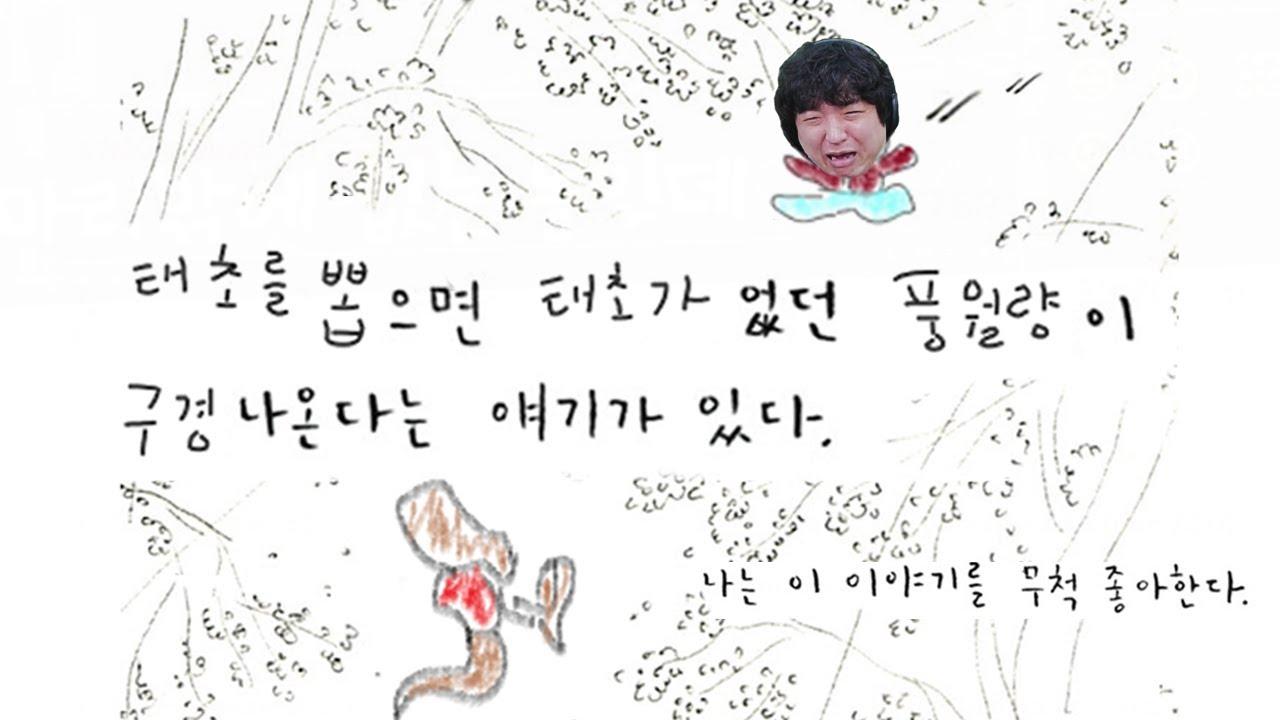 태초를 뽑으면 태초가 없던 풍월량이
구경나온다는 얘기가 있다.
나는 이 이야기를 무척 좋아한다.